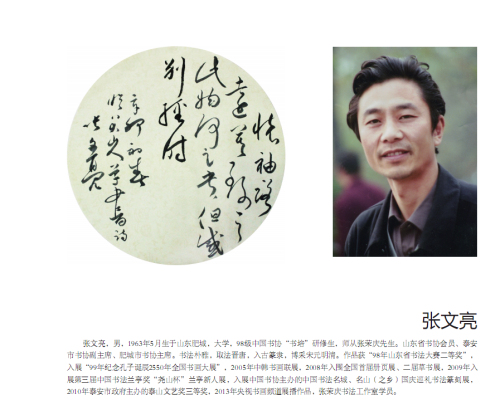 怀袖路
远莫致之
此物何足贵但感
别经时
辛卯初春
张文亮
张文亮，男，1963年5月生于山东肥城，大学，98级中国书协“书培”研修生，师从张荣庆先生。山东省书协会员、泰安
市书协副主席，肥城市书协主席。书法朴雅，取法晋唐，入古篆隶，博采宋元明清。作品获“98年山东省书法大赛二等奖”，
入展“99年纪念孔子诞辰2550年全国书画大展”，2005年中韩书画联展，2008年入围全国首届册页、二届草书展，2009年入
展第三届中国书法兰亭奖“尧山杯”兰亭新人展，入展中国书协主办的中国书法名城、名山（之乡）国庆巡礼书法篆刻展，
2010年泰安市政府主办的泰山文艺奖三等奖，2013年央视书画频道展播作品，张荣庆书法工作室学员。